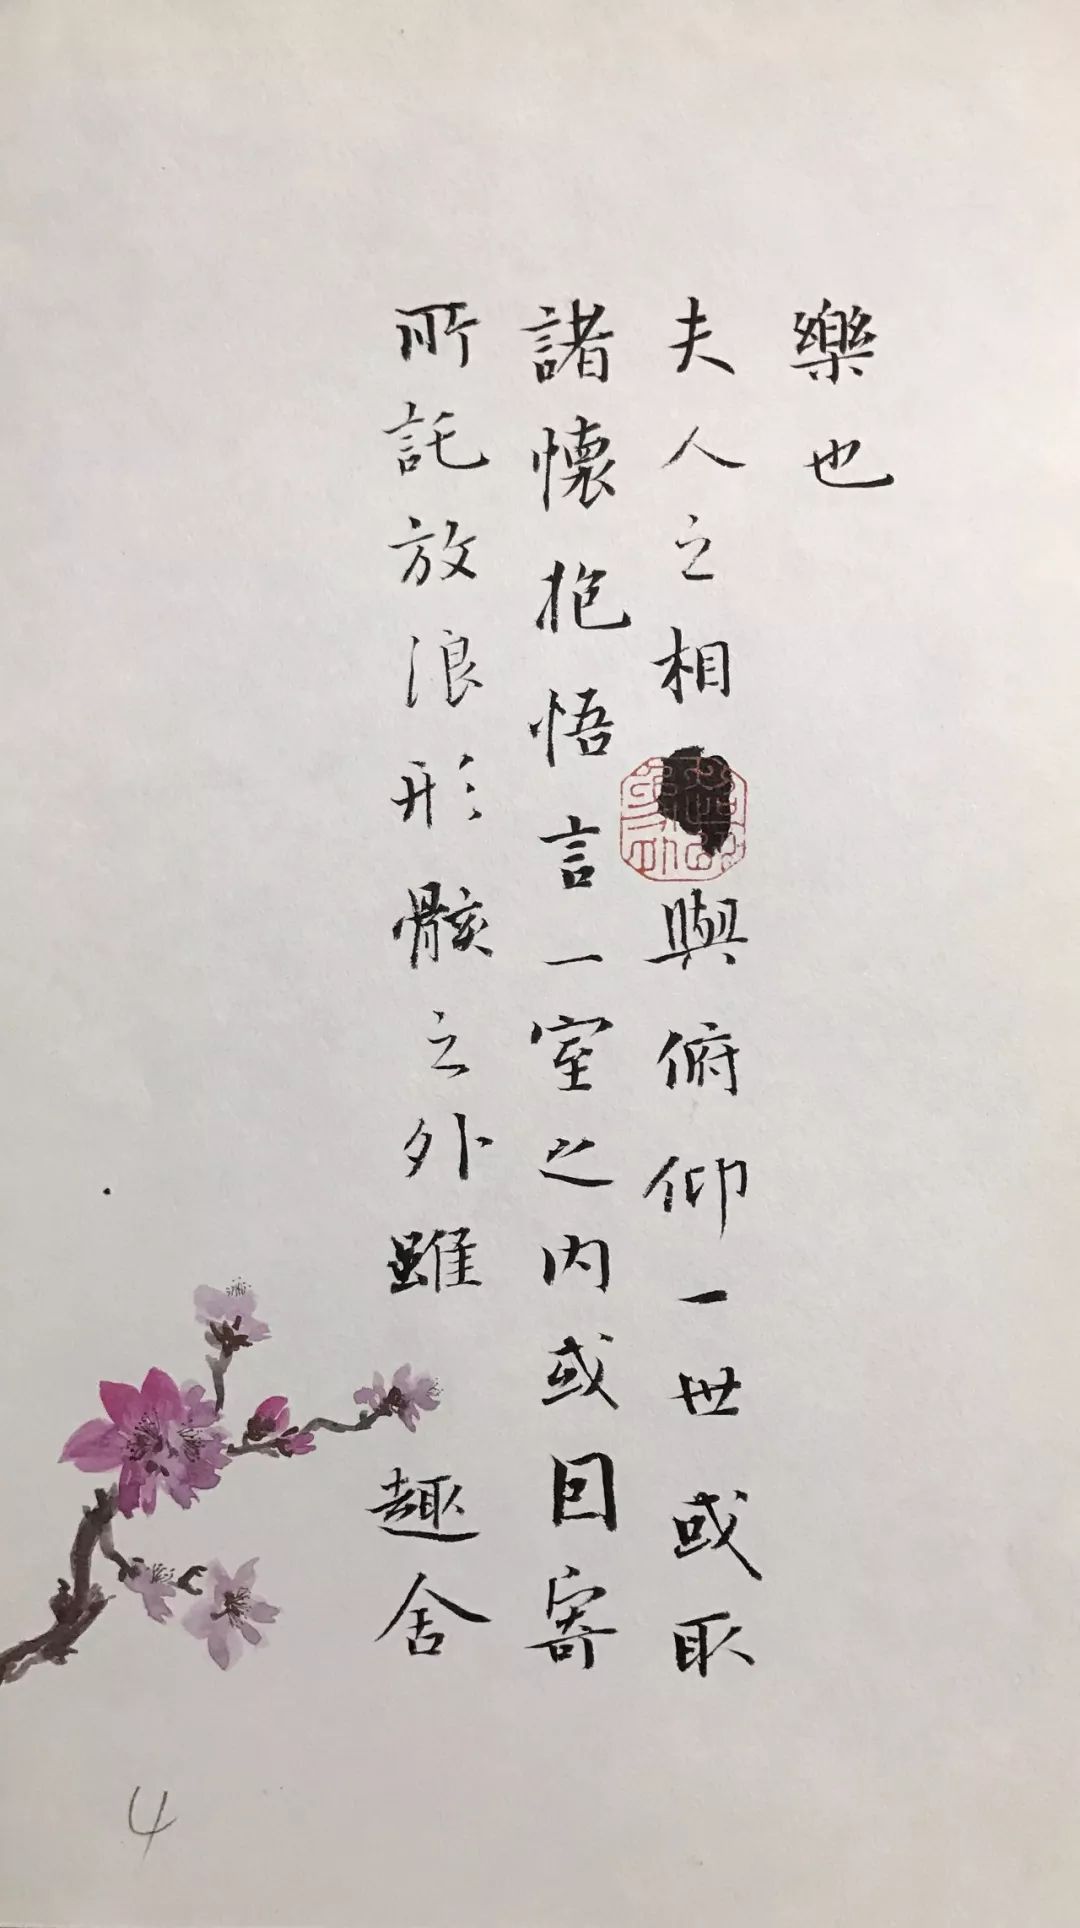 樂也
夫人之相與俯仰一世或取
諸懷抱悟言一室之内或因寄
所託放浪形骸之外雖趣舍
4